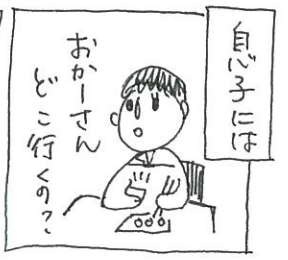 息子には
おかーさん
どこ行くの？